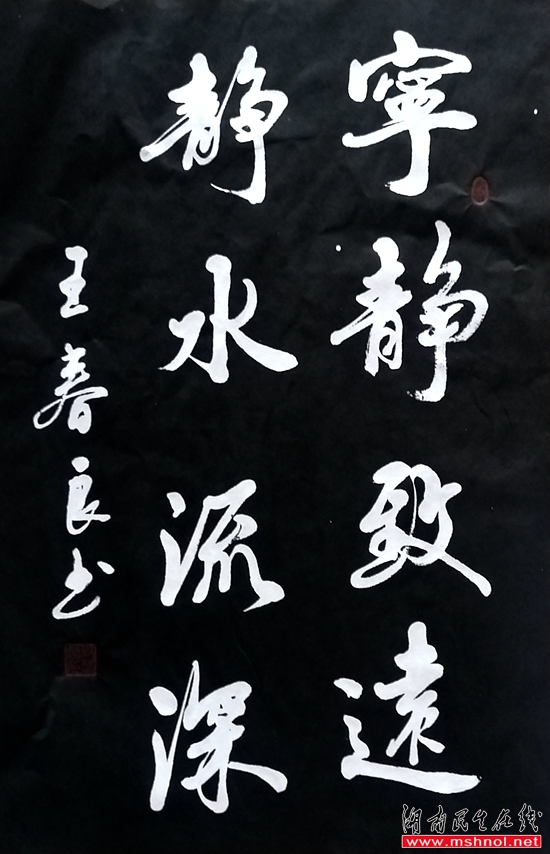 寧静致遠
静水流深
王春良书
湖南民生在线
www.mshnol.net